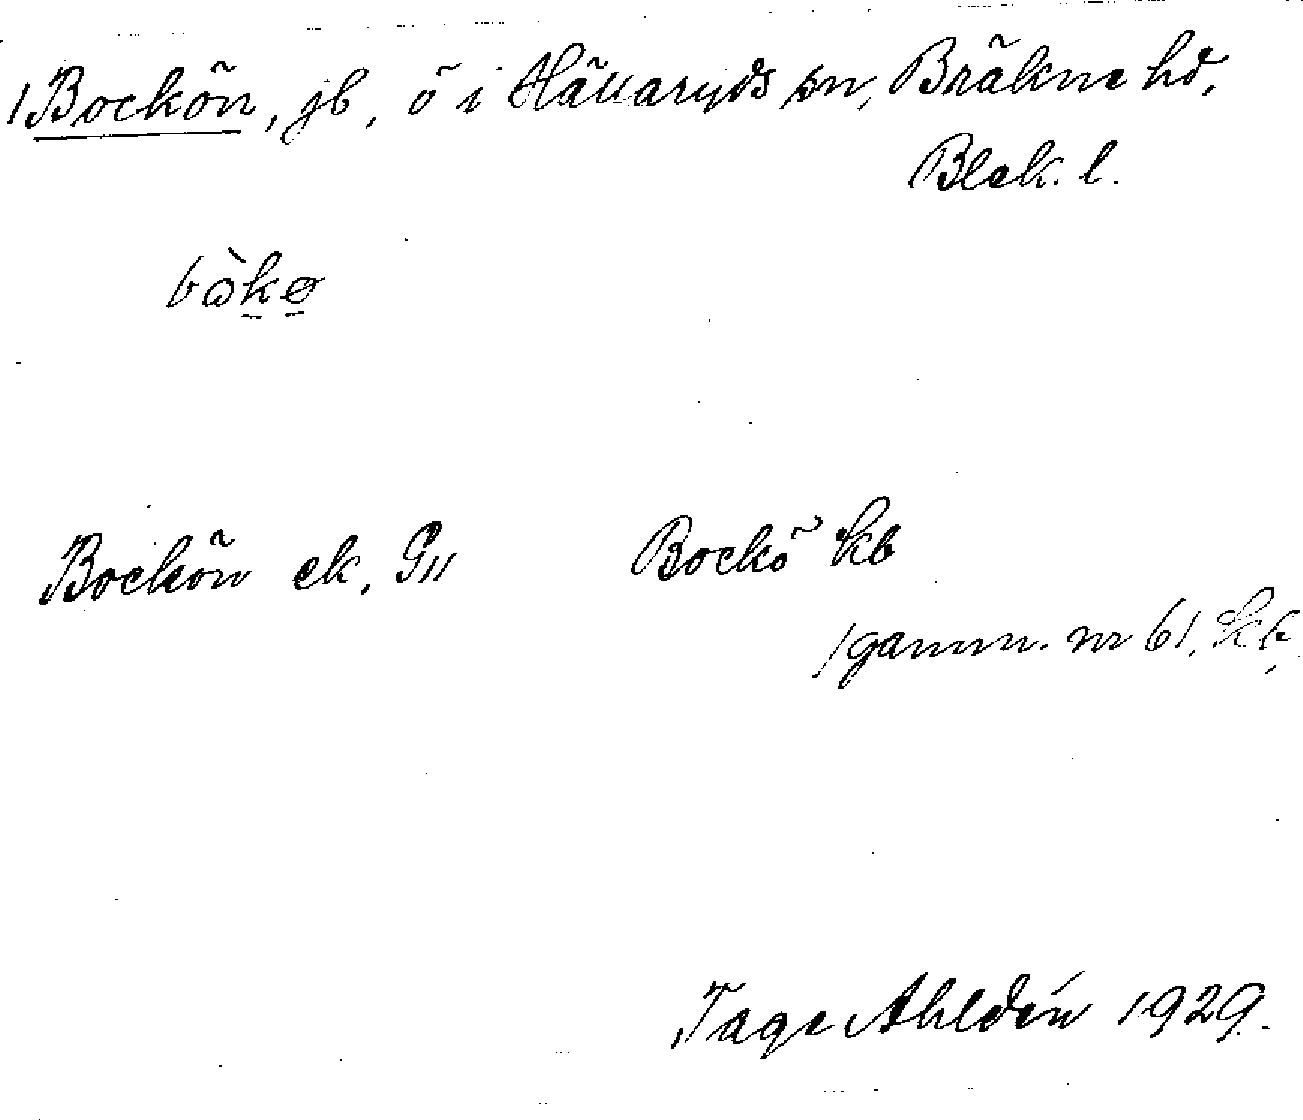 1 Bockön, jb, ö i Hällaryds sn, Bräkne hd,
Blek. l.
Bockön ek, G11
Bockö kb
/gamm. nr 61,
Tage Ahldén 1929.